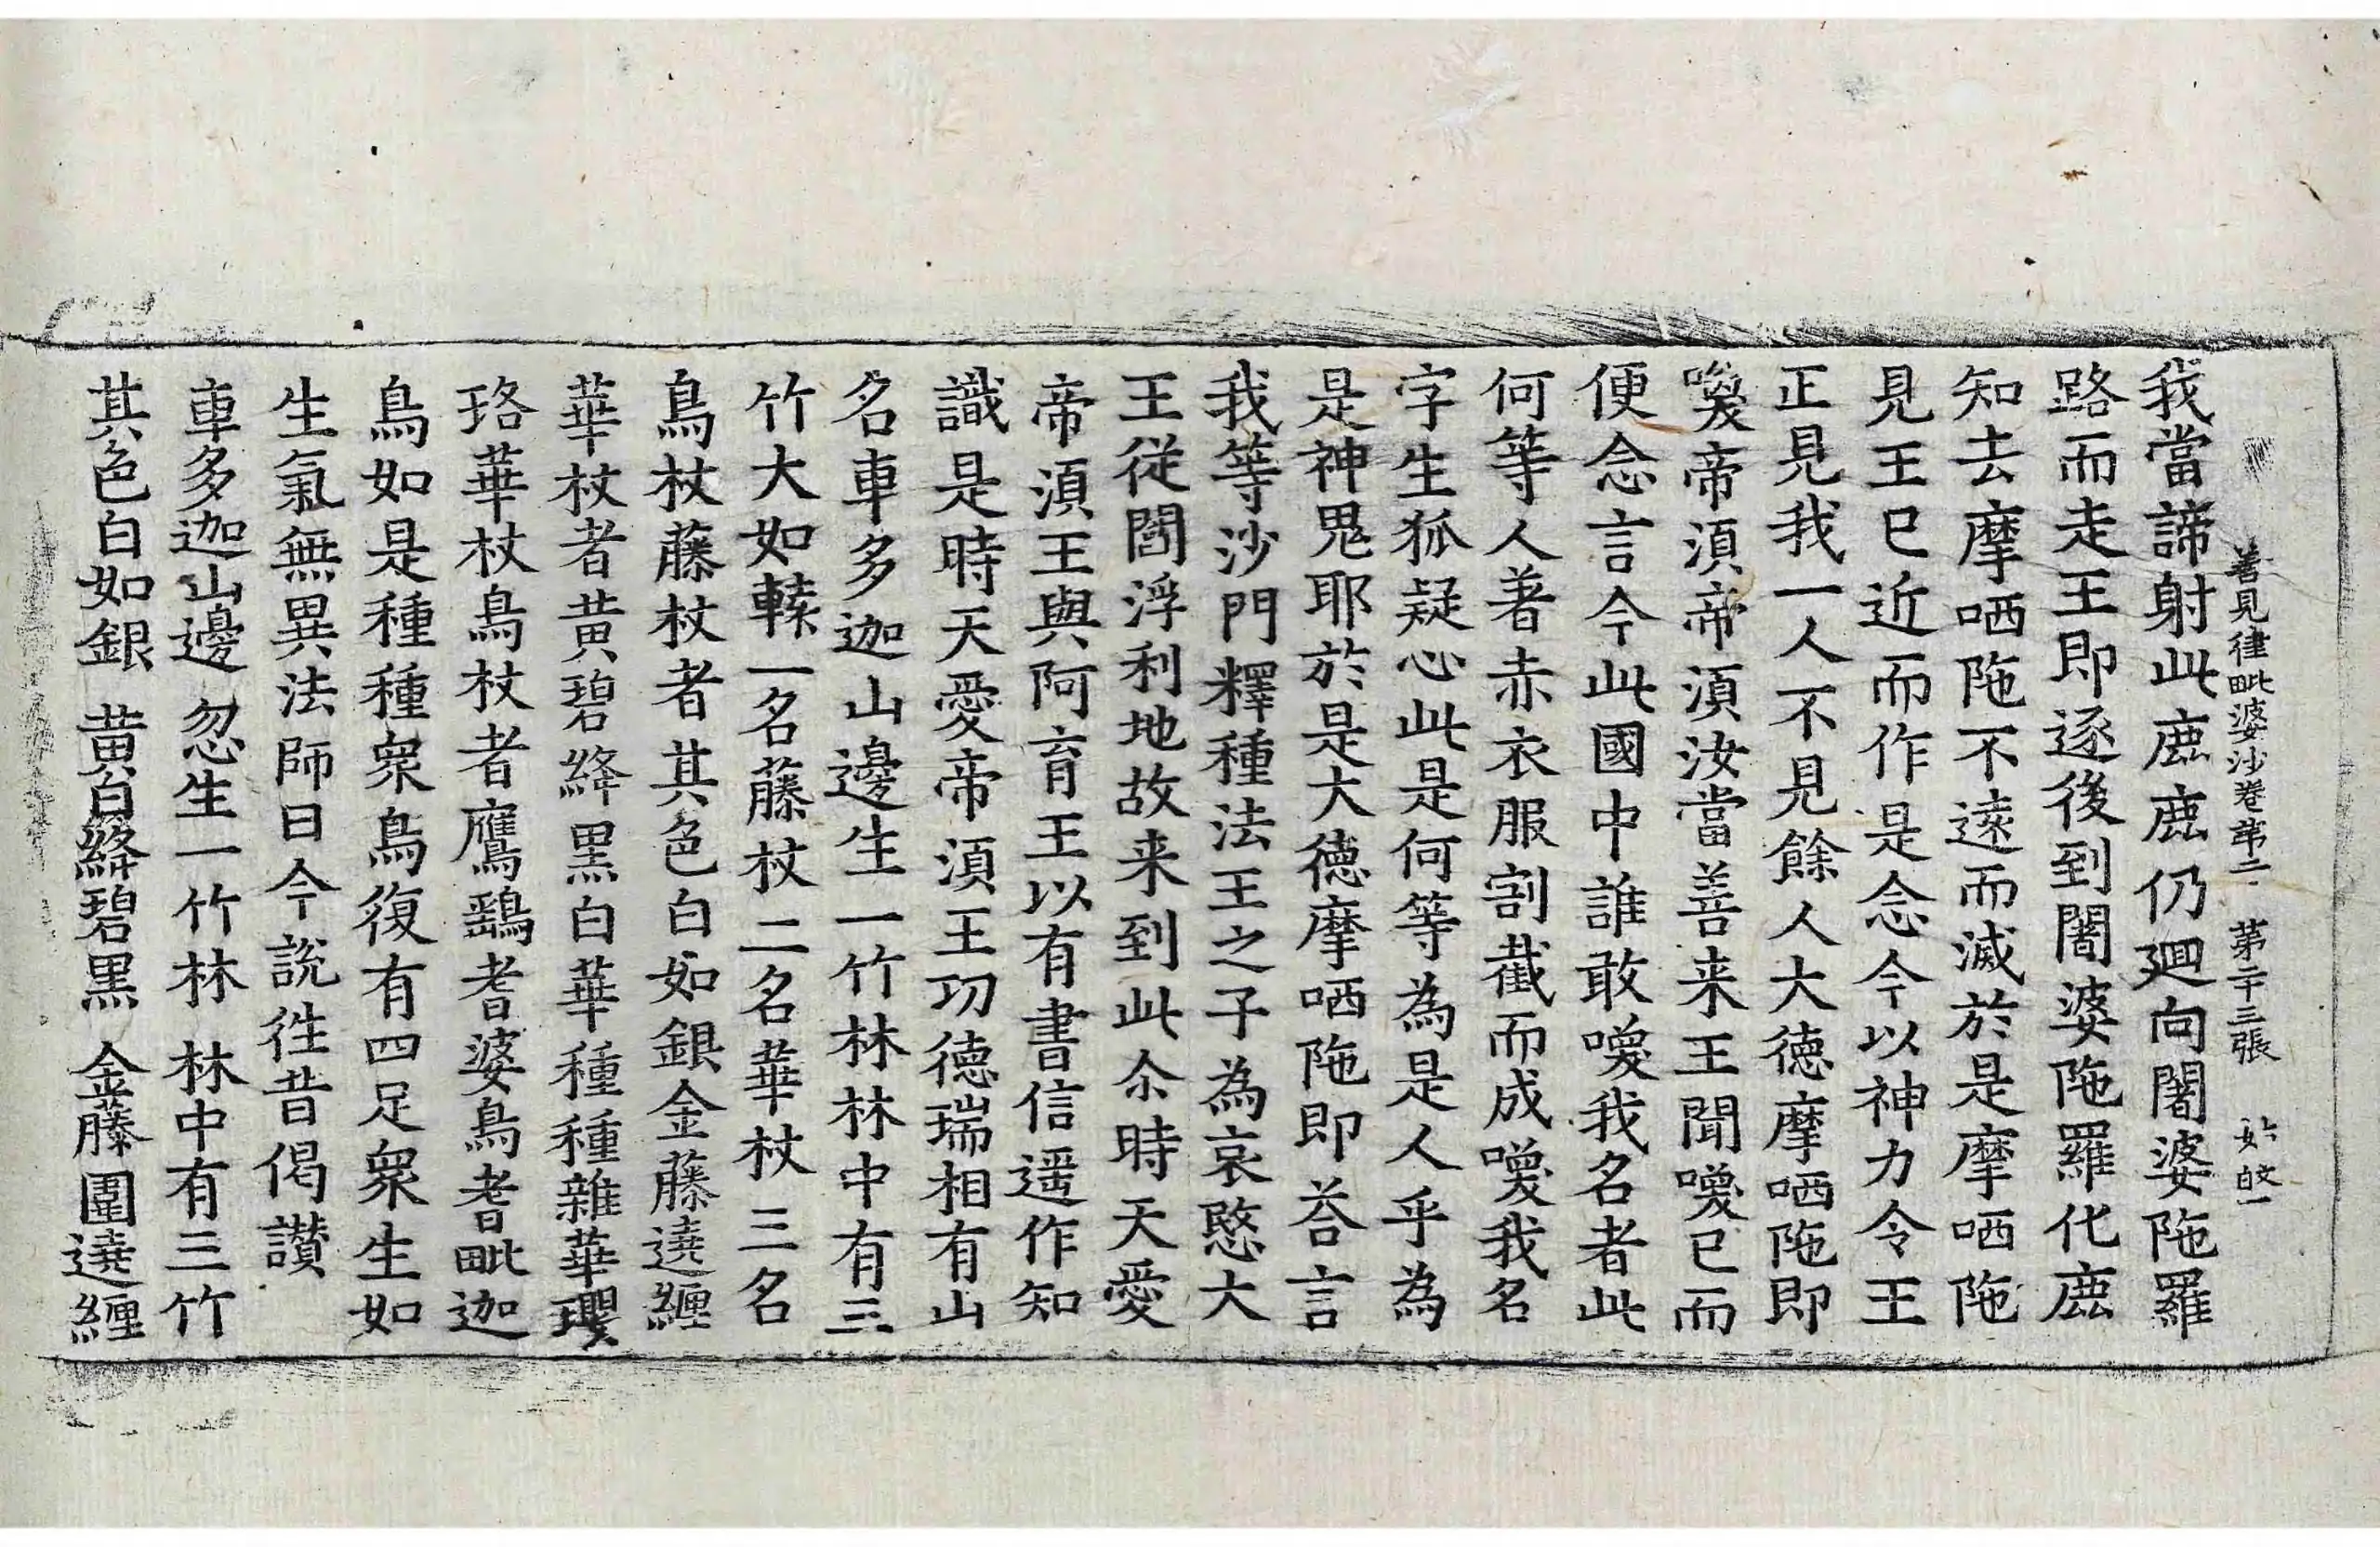 善見律毗婆沙卷第二 第二十三張
我當諦射此鹿鹿仍迴向闍婆陁羅
路而走王即逐後到闍婆陁羅化鹿
知去摩哂陁不遠而滅於是摩哂陁
見王已近而作是念今以神力令王
正見我一人不見餘人大德摩哂陁即
喚帝湏帝湏汝當善来王聞喚已而
便念言今此國中誰敢喚我名者此
何等人著赤衣服割截而成喚我名
字生狐疑心此是何等為是人乎為
是神鬼耶於是大德摩哂陁即荅言
我等沙門釋種法王之子為哀愍大
王從閻浮利地故来到此尒時天愛
帝湏王與阿育王以有書信遥作知
識是時天愛帝湏王功德瑞相有山
名車多迦山邊生一竹林林中有三
竹大如轅一名藤杖二名華杖三名
鳥杖藤杖者其色白如銀金藤遶纏
華杖者黃碧絳黑白華種種雜華瓔
珞華杖鳥杖者鷹鷂耆婆鳥耆毗迦
鳥如是種種衆鳥復有四足衆生如
生氣無異法師曰今說往昔偈讃
車多迦山邊 忽生一竹林 林中有三竹
其色白如銀 黃白絳碧黑 金藤圍遶纏